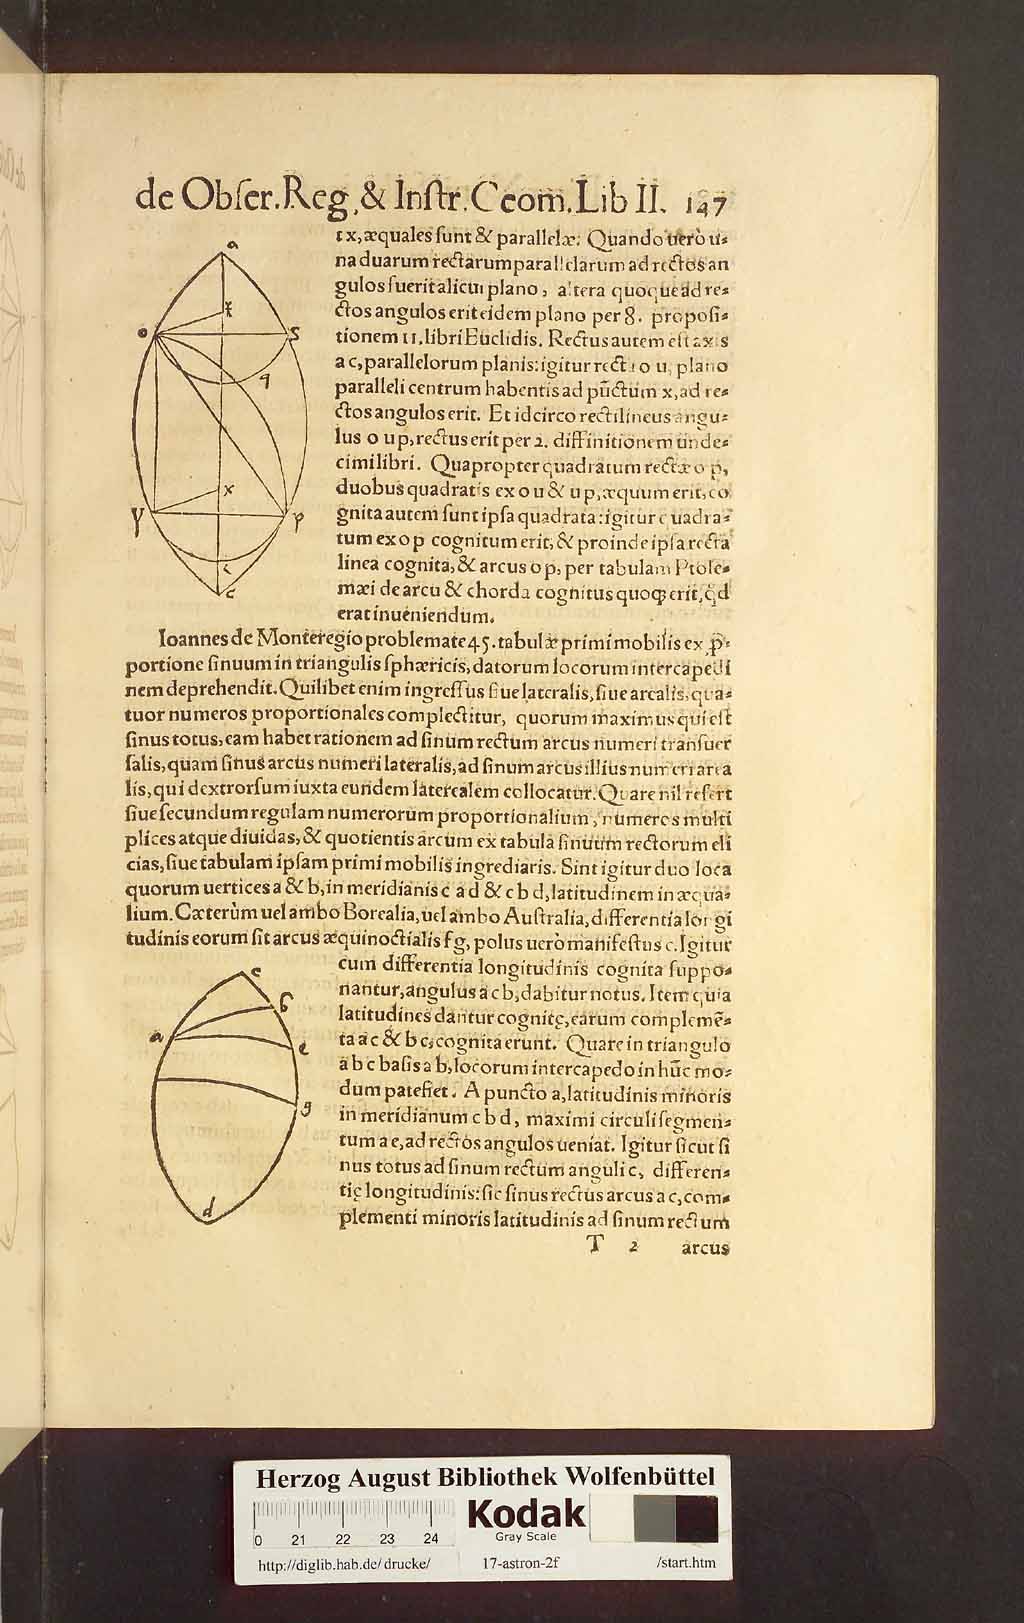 de Obſer. Reg. & Inſtr. Geom. Lib II. 147
tx, æquales ſunt & parallelæ: Quando uerò u⸗
na duarum rectarum parallelarum ad rectos an
gulos fuerit alicui plano, altera quoque ad re⸗
ctos angulos erit eidem plano per 8. propoſi⸗
tionem 11. libri Euclidis. Rectus autem eſt axis
a c, parallelorum planis: igitur recta o u, plano
paralleli centrum habentis ad pũctum x, ad re⸗
ctos angulos erit. Et idcirco rectilineus angu⸗
lus o u p, rectus erit per 2. diffinitionem unde⸗
cimi libri. Quapropter quadratum rectæ o p,
duobus quadratis ex o u & u p, æquum erit, co
gnita autem ſunt ipſa quadrata: igitur quadra⸗
tum ex o p cognitum erit, & proinde ipſa recta
linea cognita, & arcus o p, per tabulam Ptole⸗
mæi de arcu & chorda cognitus quoq; erit, q̃d
erat inueniendum.
a
t
o
s
q
x
y
p
i
c
Ioannes de Monteregio problemate 45. tabulæ primi mobilis ex ꝓ⸗
portione ſinuum in triangulis ſphæricis, datorum locorum intercapedi
nem deprehendit. Quilibet enim ingreſſus ſiue lateralis, ſiue arealis, qua⸗
tuor numeros proportionales complectitur, quorum maximus qui eſt
ſinus totus, eam habet rationem ad ſinum rectum arcus numeri tranſuer
ſalis, quam ſinus arcus numeri lateralis, ad ſinum arcus illius numeri area
lis, qui dextrorſum iuxta eundem laterealem collocatur. Quare nil refert
ſiue ſecundum regulam numerorum proportionalium, numeros multi
plices atque diuidas, & quotientis arcum ex tabula ſinuum rectorum eli
cias, ſiue tabulam ipſam primi mobilis ingrediaris. Sint igitur duo loca
quorum uertices a & b, in meridianis c a d & c b d, latitudinem inæqua⸗
lium. Cæterùm uel ambo Borealia, uel ambo Auſtralia, differentia longi
tudinis eorum ſit arcus æquinoctialis f g, polus uerò manifeſtus c. Igitur
cum differentia longitudinis cognita ſuppo⸗
nantur, angulus a c b, dabitur notus. Item quia
latitudines dantur cognitę, earum complemẽ⸗
ta a c & b c, cognita erunt. Quare in triangulo
a b c baſis a b, locorum intercapedo in hũc mo⸗
dum patefiet. A puncto a, latitudinis minoris
in meridianum c b d, maximi circuli ſegmen⸗
tum a e, ad rectos angulos ueniat. Igitur ſicut ſi
nus totus ad ſinum rectum anguli c, differen⸗
tię longitudinis: ſic ſinus rectus arcus a c, com⸗
plementi minoris latitudinis ad ſinum rectum
c
b
a
e
g
d
T 2 arcus
Herzog August Bibliothek Wolfenbüttel
Kodak
Gray Scale
0 21 22 23 24
http://diglib.hab.de/drucke/ 17-astron-2f /start.htm